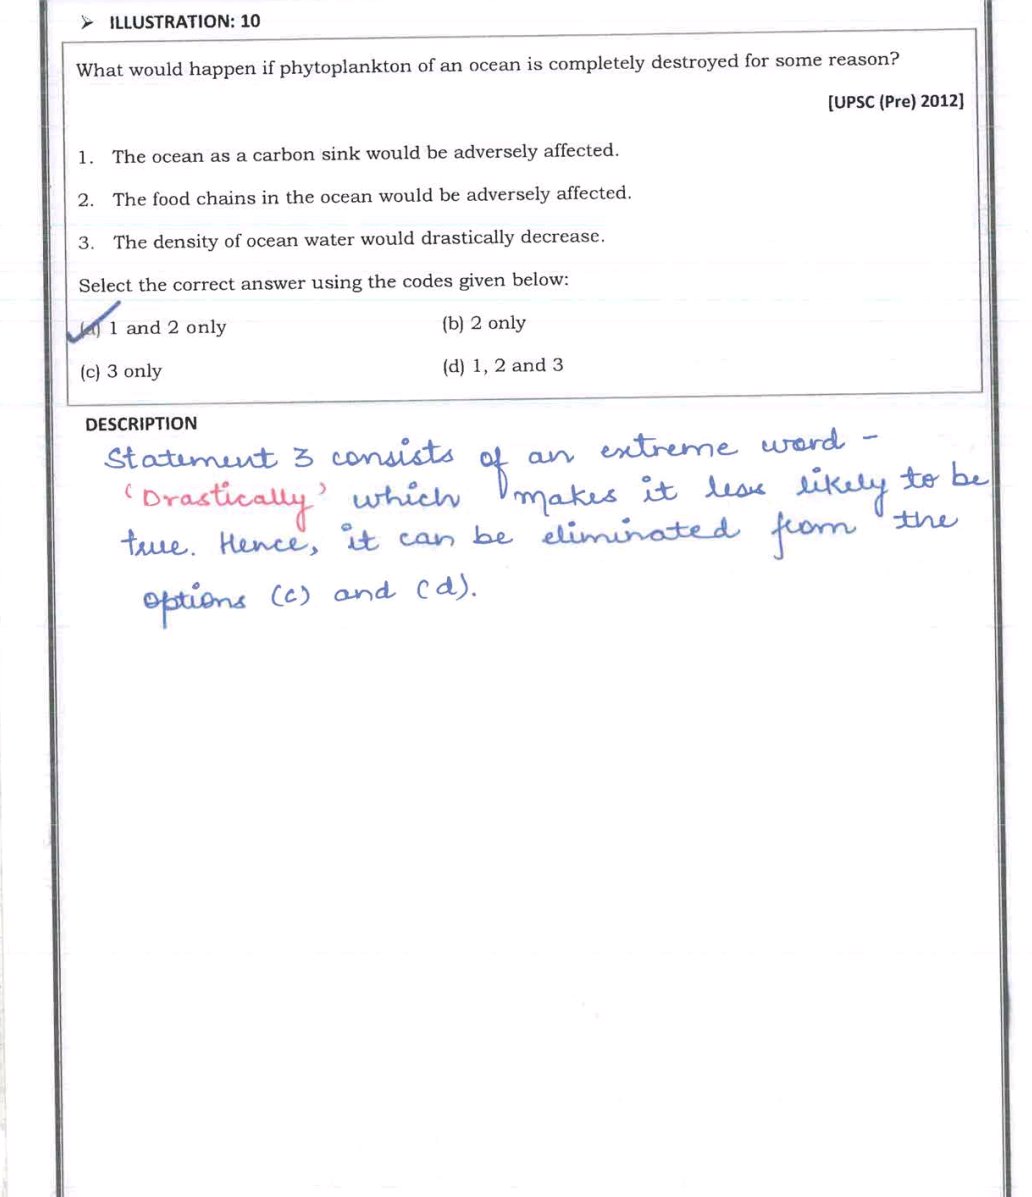 ➤ ILLUSTRATION: 10
What would happen if phytoplankton of an ocean is completely destroyed for some reason?
[UPSC (Pre) 2012]
1. The ocean as a carbon sink would be adversely affected.
2. The food chains in the ocean would be adversely affected.
3. The density of ocean water would drastically decrease.
Select the correct answer using the codes given below:
(a) 1 and 2 only (b) 2 only
(c) 3 only (d) 1, 2 and 3
DESCRIPTION
Statement 3 consists of an extreme word -
'Drastically' which makes it less likely to be
true. Hence, it can be eliminated from the
options (c) and (d).